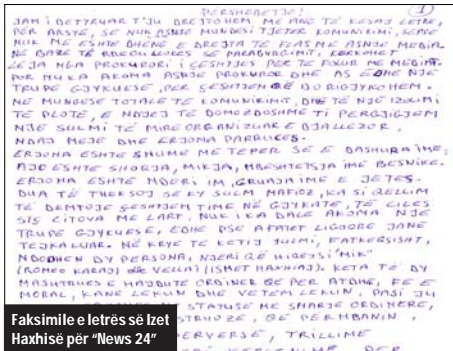 PËRSHËNDETJE! 1
JAM I DETYRUAR T'JU DREJTOHEM ME ANË TË KËSAJ LETRE,
PËR ARSYE, SE NUK ASNJË MUNDËSI TJETËR KOMUNIKIMI, SEPSE
NUK ME ËSHTË DHËNË E DREJTA TË FLAS ME ASNJË MEDIA.
NË BAZË TË RREGULLORES SË PARABURGIMIT, KËRKOHET
LEJA NGA PROKURORI I ÇËSHTJES PËR TË FOLUR ME MEDIAT.
POR NUK KA AKOMA ASNJË PROKUROR DHE AS EDHE NJË
TRUPË GJYKUESE, PËR ÇËSHTJEN QË DO RIGJYKOHEM.
NË MUNDËSË TOTALE TË KOMUNIKIMIT, DHE TË NJË IZOLIMI
TË PLOTË, E NDJEJ TË DOMOZDOSHME TI PËRGJIGJEM
NJË SULMI TË MIRË ORGANIZUAR E DJALLËZOR,
NDAJ MEJE DHE ERJONA PARRUCËS.
ERJONA ËSHTË SHUMË MË TEPËR SE E DASHURA IME;
AJO ËSHTË SHOQJA, MIKJA, MBËSHTETËSJA IME BESNIKE.
ERJONA ËSHTË NDERI IM, GRUAJA IME E JETËS.
DUA TË THEKSOJ SE KY SULM MAFIOZ, KA SI QËLLIM
TË DËMTOJË ÇËSHTJEN TIME NË GJYKATË, TË CILËS
SIÇ CITOVA MË LART, NUK I KA DALË AKOMA NJË
TRUPË GJYKUESE, EDHE PSE AFATET LIGJORE JANË
TEJKALUAR. NË KRYE TË KËTIJ SULMI, FATKEQËSISHT,
NDODHEN DY PERSONA, NJERI QË HIQEJ SI "MIK"
(ROMEO KARAJ) dhe VELLAI (ISMET HAXHIAJ). KËTA TË DY
MASHTRUES E HAJDUTË ORDINER QË PËR ATDHE, FE E
MORAL, KANË LEKUN DHE VETËM LEKUN, PASI JU
STATUSE ME SHARJE ORDINERE,
QË PËRMBANIN,
PERVERSE, TRILLIME
KËRCËNIME PËR
Faksimile e letrës së Izet
Haxhisë për "News 24"